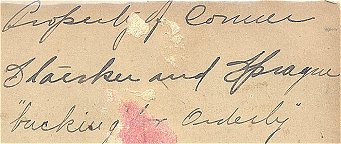 Property of Conner
Staesker and Sprague
"bucking" Orderly"